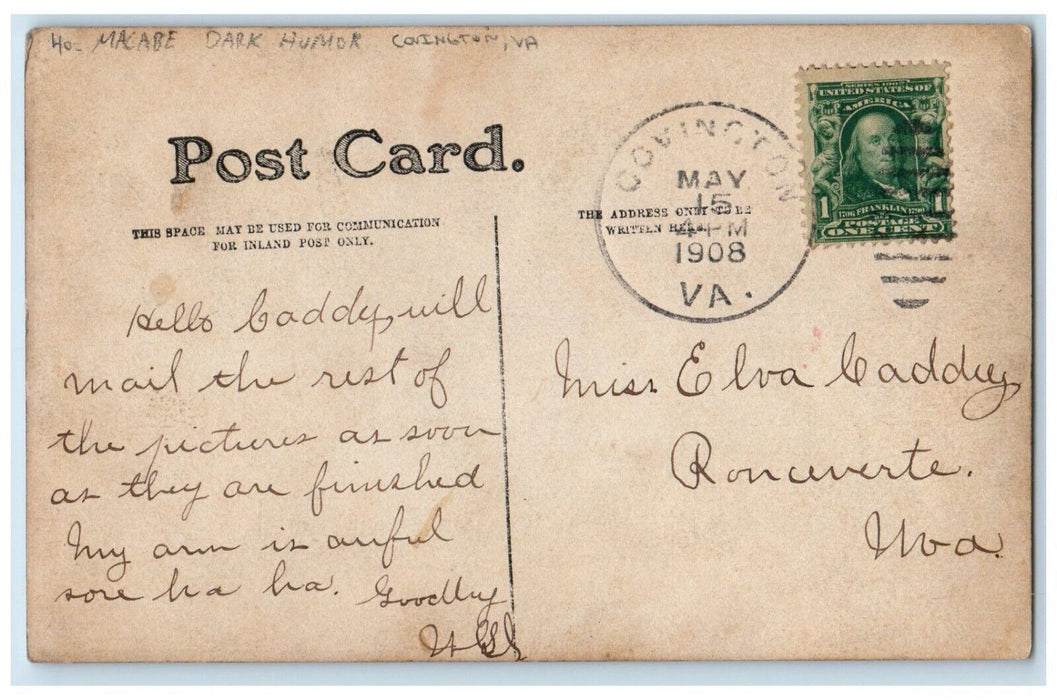 40- MACABE DARK HUMOR COVINGTON, VA
Post Card.
THIS SPACE MAY BE USED FOR COMMUNICATION
FOR INLAND POST ONLY.
THE ADDRESS ONLY TO BE
WRITTEN HERE.
COVINGTON
MAY
15
4-PM
1908
VA.
SERIES 1902
UNITED STATES OF
AMERICA
1706 FRANKLIN 1790
1 1
POSTAGE
ONE CENT
Hello Caddy, will
mail the rest of
the pictures as soon
as they are finished
My arm is awful
sore ha ha. Goodby
Miss Elva Caddy
Ronceverte.
Wva.